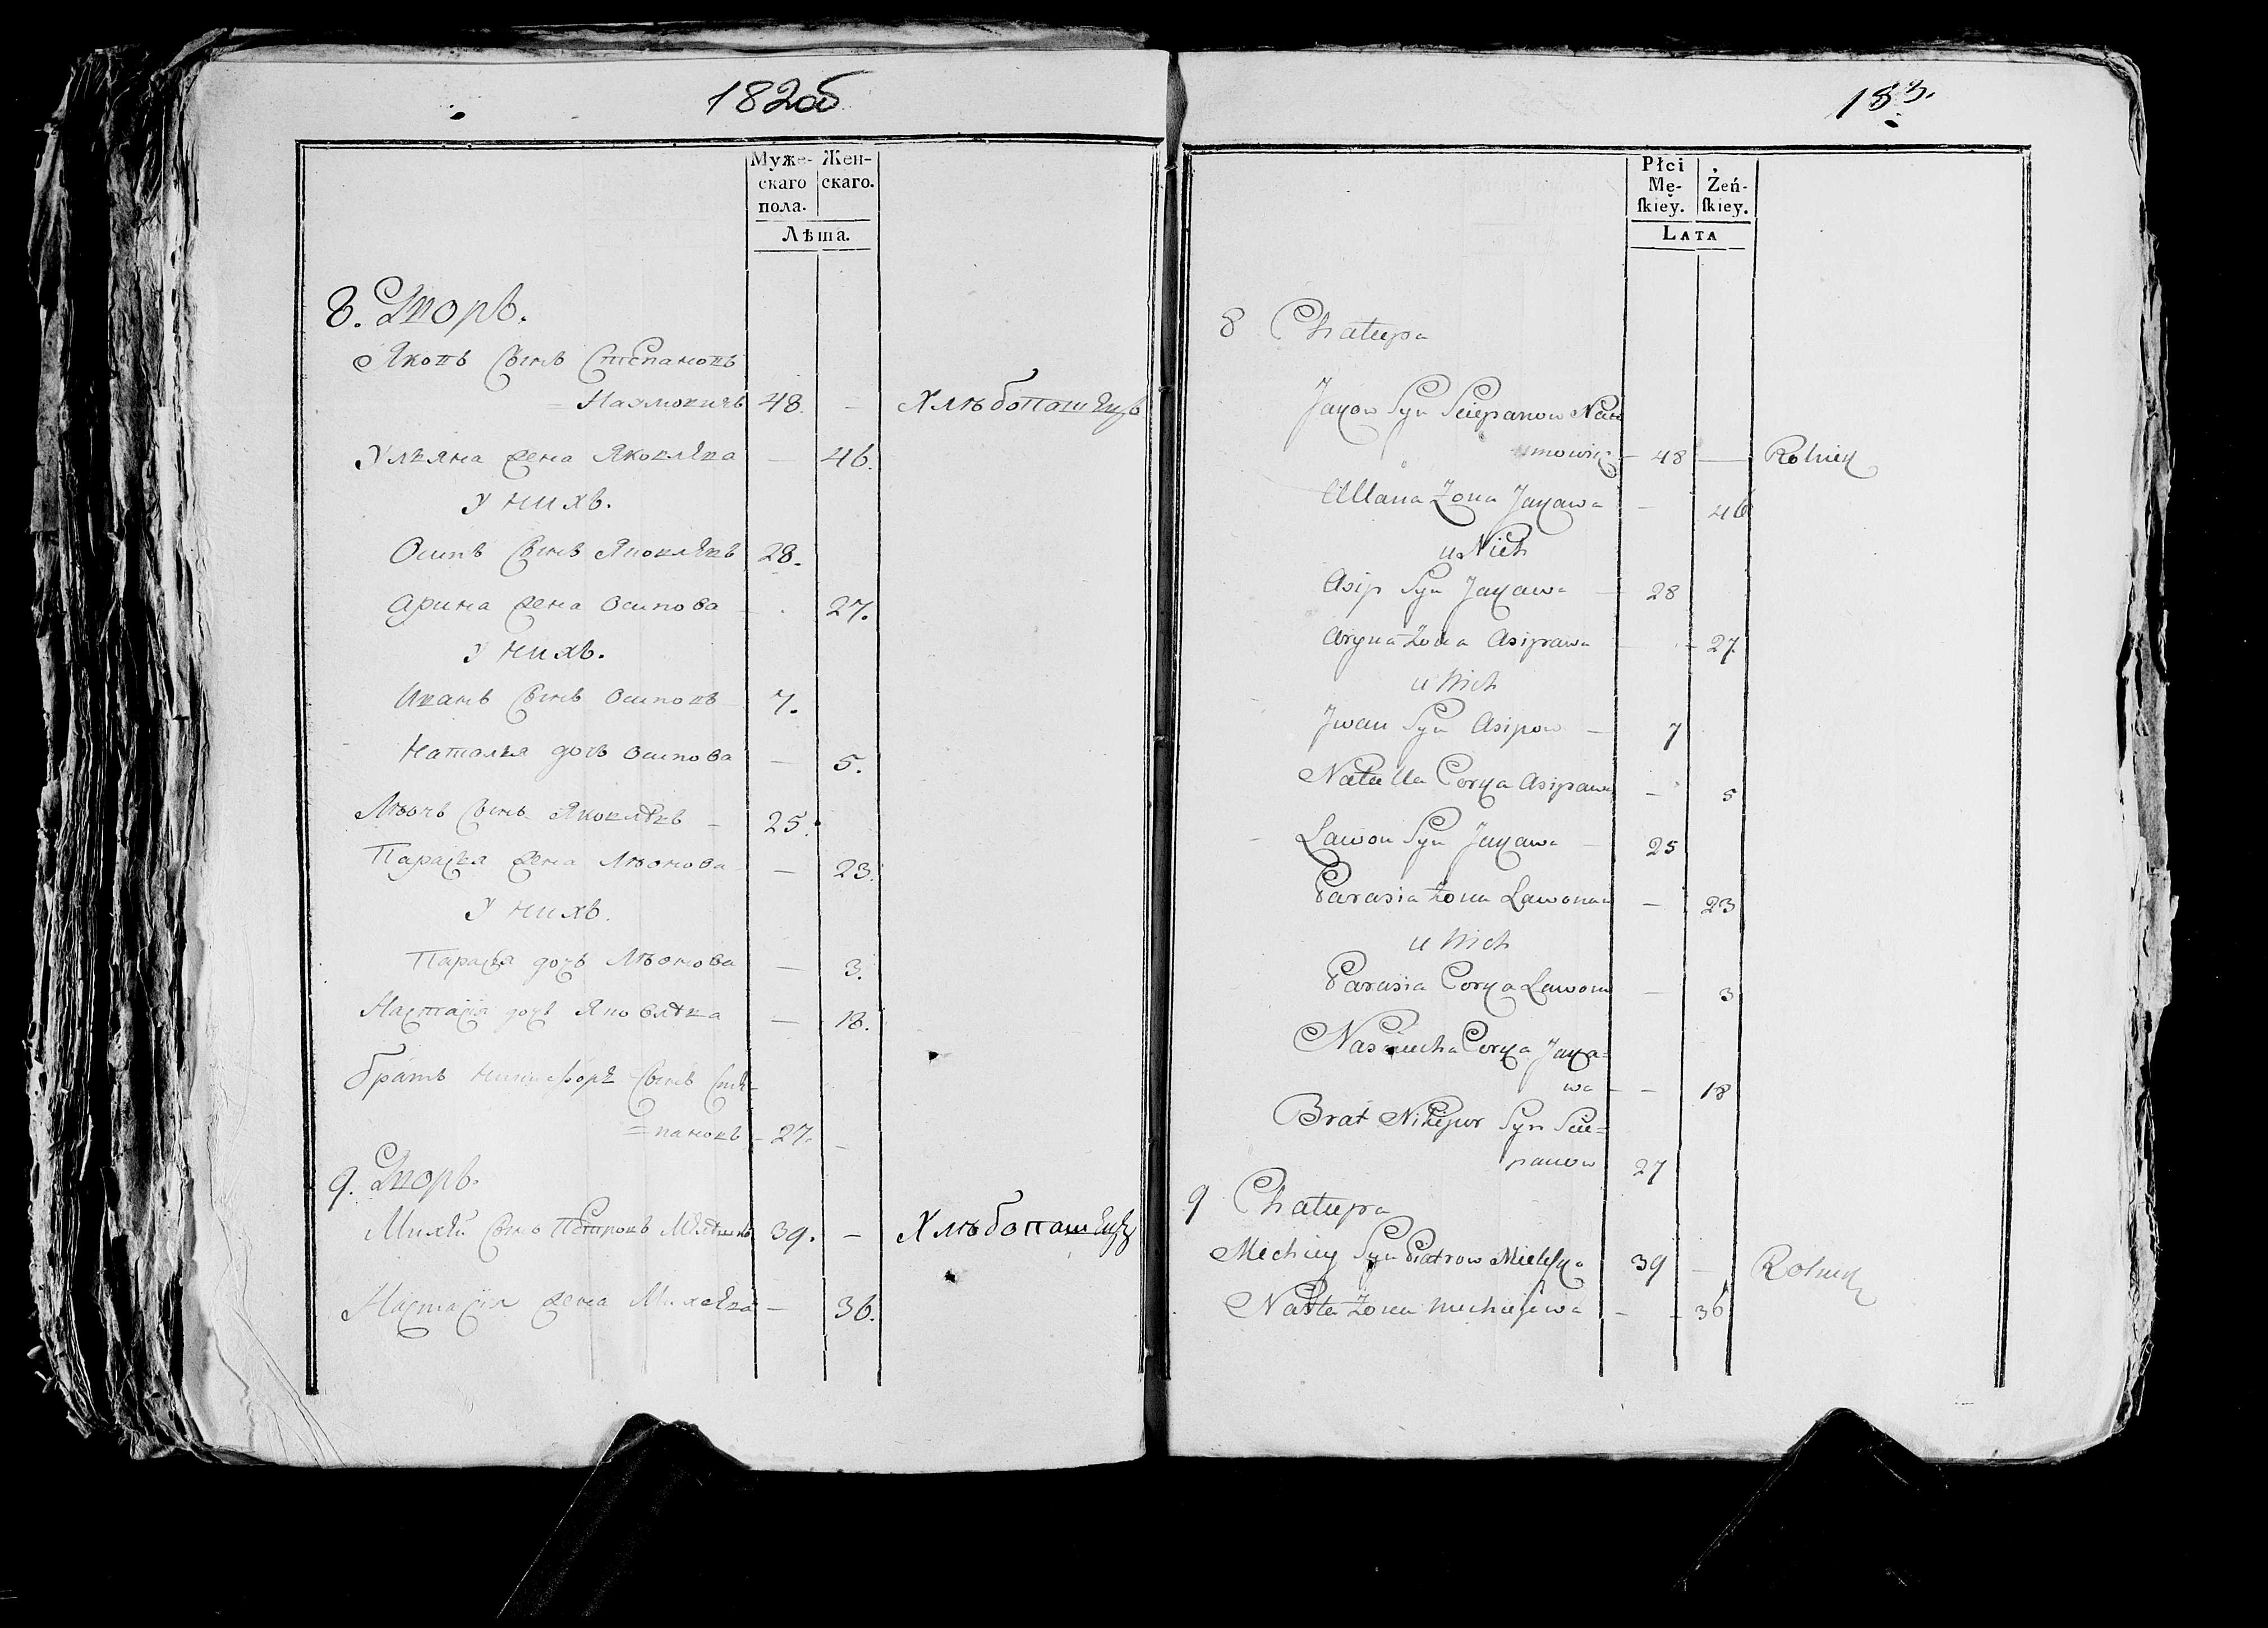 182об
Муже-
скаго
пола.
Жен-
скаго.
Лѣта.
8. Дворъ.
Яковъ Сынъ Степановъ
= Наумовичъ 48. – Хлѣбопашецъ
Ульяна жена Яковлева – 46.
У нихъ.
Осипъ Сынъ Яковлевъ 28.
Арина жена Осипова – 27.
У нихъ.
Иванъ Сынъ Осиповъ 7.
Наталья дочь Осипова – 5.
Лѣонъ Сынъ Яковлевъ – 25.
Параскя жена Лѣонова – 23.
У нихъ.
Параскя дочь Лѣонова – 3.
Настасія дочь Яковлева – 18.
братъ Никифоръ Сынъ Сте-
=пановъ – 27. –
9. Дворъ.
Михей Сынъ Петровъ 39. – Хлѣбопашецъ
Настасія жена Михеева – 36.
183.
Płci
Mę-
skiey.
Żeń-
skiey.
LATA
8 Chałupa
Jakow Syn Sciepanow Nau
umowicz – 48 – Rolnik
Ullana Żona Jakawa – 46
u Nich
Asip Syn Jakawa – 28
Aryna Żona Asipawa – 27
u Nich
Jwan Syn Asipow – 7
Natalla Corka Asipawa – 5
Lawon Syn Jakawa – 25
Parasia Żona Lawonawa – 23
u Nich
Parasia Corka Lawona – 3
Nasciucha Corka Jaka=
wa – – 18
Brat Nikipor Syn Scie=
panow 27
9 Chałupa
Michiey Syn Piatrow Mieleszka 39 – Rolnik
Nasta Żona Michiejewa – – 36